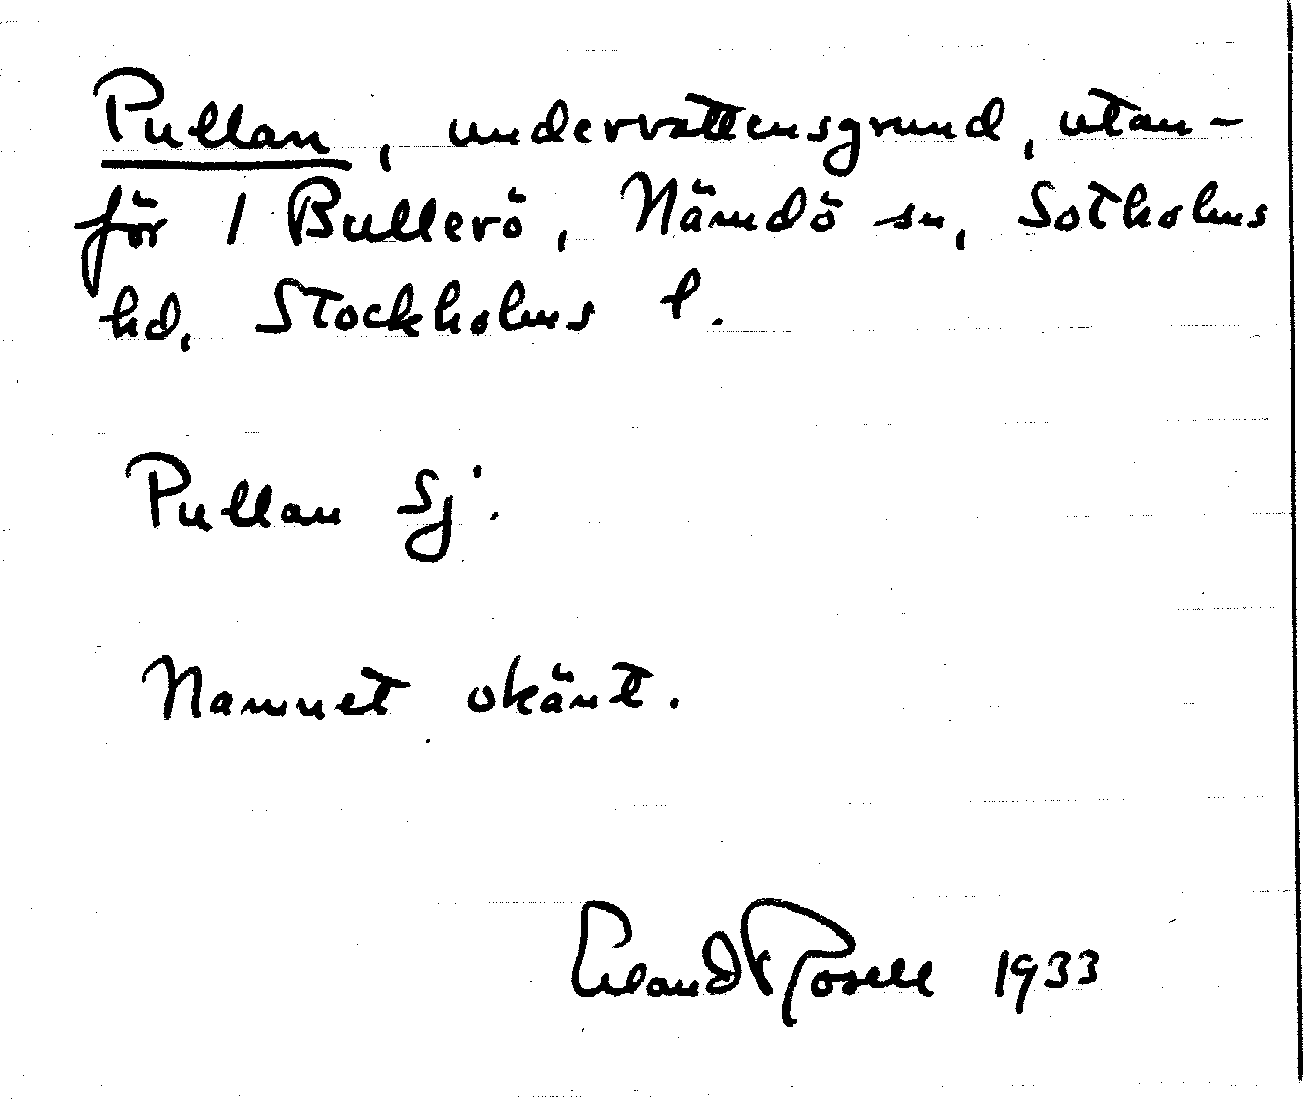 Pullan, undervattensgrund, utan-
för 1 Bullerö, Nämdö sn, Sotholms
hd, Stockholms l.
Pullan Sj.
Namnet okänt.
Erland Rosell 1933